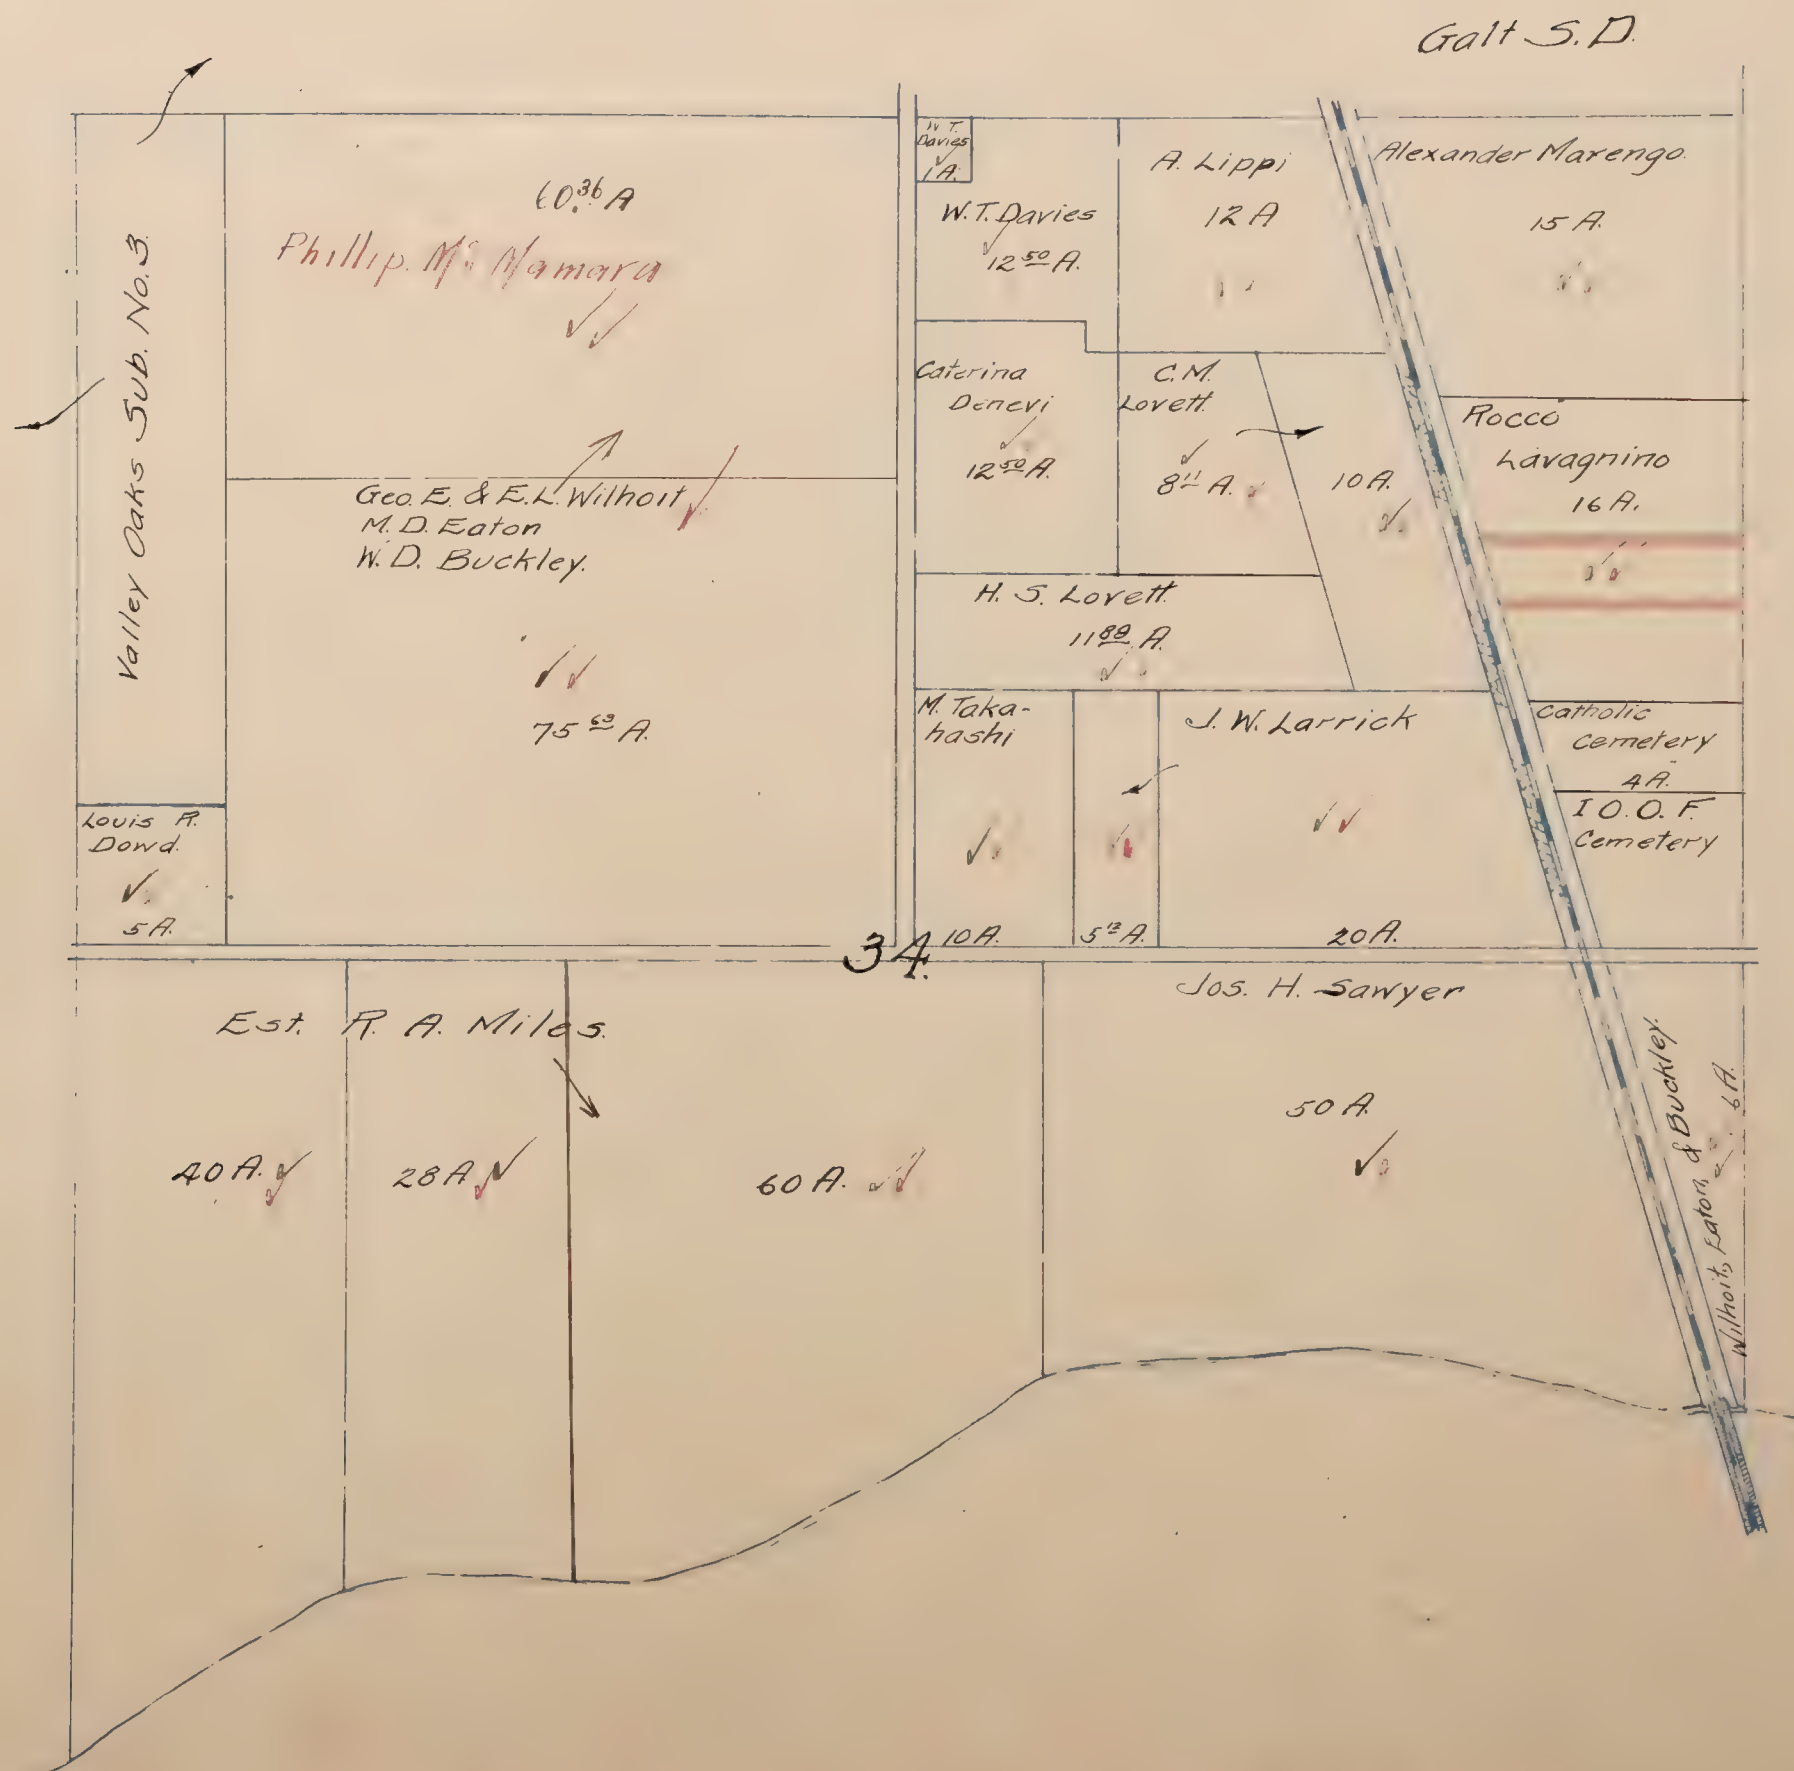 Galt S.D.
Valley Oaks Sub. No. 3.
60.36 A
Phillip. Mc Namara
Geo. E. & E.L. Wilhoit
M. D. Eaton
W. D. Buckley.
75 63 A.
Louis R.
Dowd.
5 A.
W. T.
Davies
1 A.
W. T. Davies
12 50 A.
A. Lippi
12 A
Alexander Marengo.
15 A.
Caterina
Denevi
12 50 A.
C. M.
Lovett
8 11 A.
10 A.
Rocco
Lavagnino
16 A.
H. S. Lovett
11 88 A.
M. Taka-
hashi
10 A.
5 12 A.
J. W. Larrick
20 A.
Catholic
Cemetery
4 A.
I O. O. F.
Cemetery
34.
Est. R. A. Miles.
40 A.
28 A
60 A.
Jos. H. Sawyer
50 A.
Wilhoit, Eaton, & Buckley.
6 A.